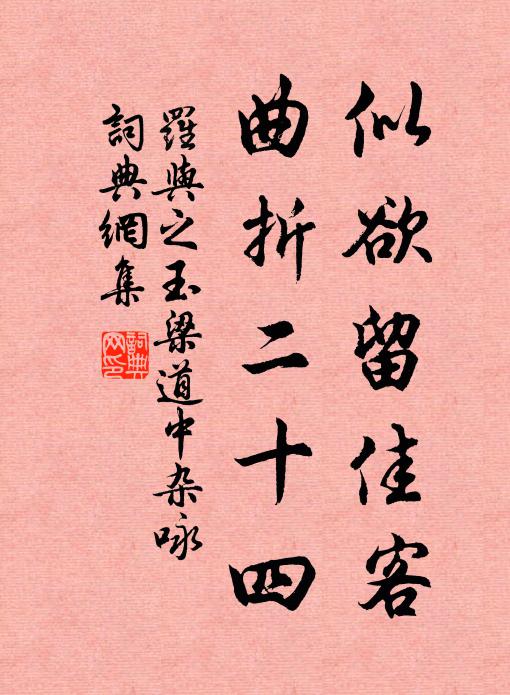 似欲留佳客
曲折二十四
羅與之玉梁道中杂咏
詞典網集
詞典网印